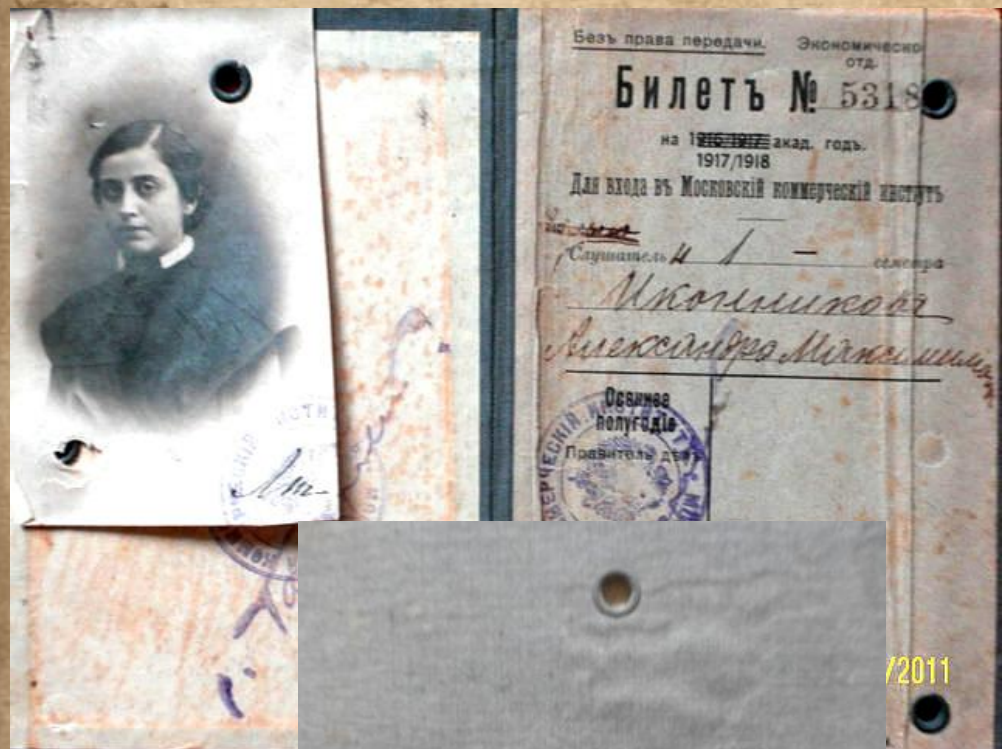 Безъ права передачи.
Экономическо
отд.
Билетъ № 5318
на 1916-1917 акад. годъ.
1917/1918
Для входа въ Московскій коммерческій институтъ
Слушатель 1 — семестра
Иконникова
Александра Максимил
Осеннее
полугодіе
Правитель дѣлъ
/2011